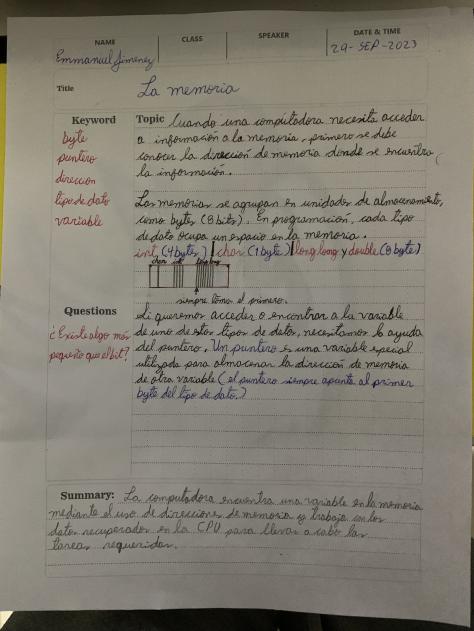 NAME CLASS SPEAKER DATE & TIME
Emmanuel Jimenez 29-SEP-2023
Title La memoria
Keyword
byte
puntero
direccion
tipo de dato
variable
Topic Cuando una computadora necesita acceder
a información a la memoria, primero se debe
conocer la dirección de memoria donde se encuentra
la información.
Las memorias se agrupan en unidades de almacenamiento,
como bytes (8 bits). En programación, cada tipo
de dato ocupa un espacio en la memoria.
int (4 bytes) | char (1 byte) | long long y double (8 byte)
char int long long
siempre toma el primero.
Questions
¿Existe algo más
pequeño que el bit?
Si queremos acceder o encontrar a la variable
de uno de estos tipos de datos, necesitamos la ayuda
del puntero. Un puntero es una variable especial
utilizada para almacenar la dirección de memoria
de otra variable (el puntero siempre apunta al primer
byte del tipo de dato.)
Summary: La computadora encuentra una variable en la memoria
mediante el uso de direcciones de memoria y trabaja con los
datos recuperados en la CPU para llevar a cabo las
tareas requeridas.